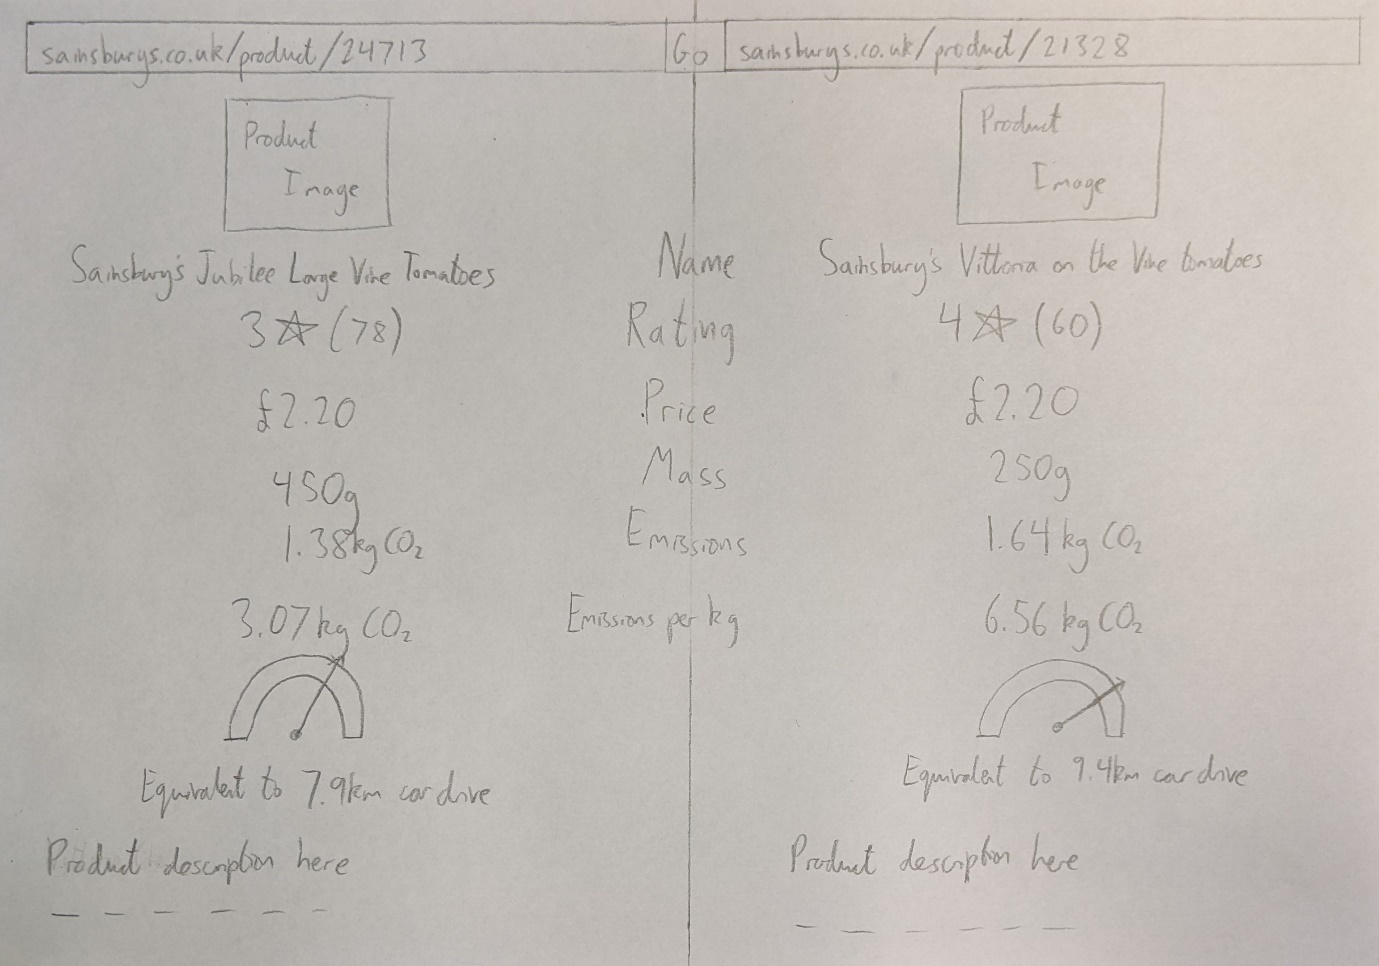 sainsburys.co.uk/product/24713 Go sainsburys.co.uk/product/21328
Product Image
Product Image
Sainsbury's Jubilee Large Vine Tomatoes Name Sainsbury's Vittoria on the Vine tomatoes
3☆ (78) Rating 4☆ (60)
£2.20 Price £2.20
450g Mass 250g
1.38kg CO₂ Emissions 1.64 kg CO₂
3.07 kg CO₂ Emissions per kg 6.56 kg CO₂
Equivalent to 7.9km car drive Equivalent to 9.4km car drive
Product description here Product description here